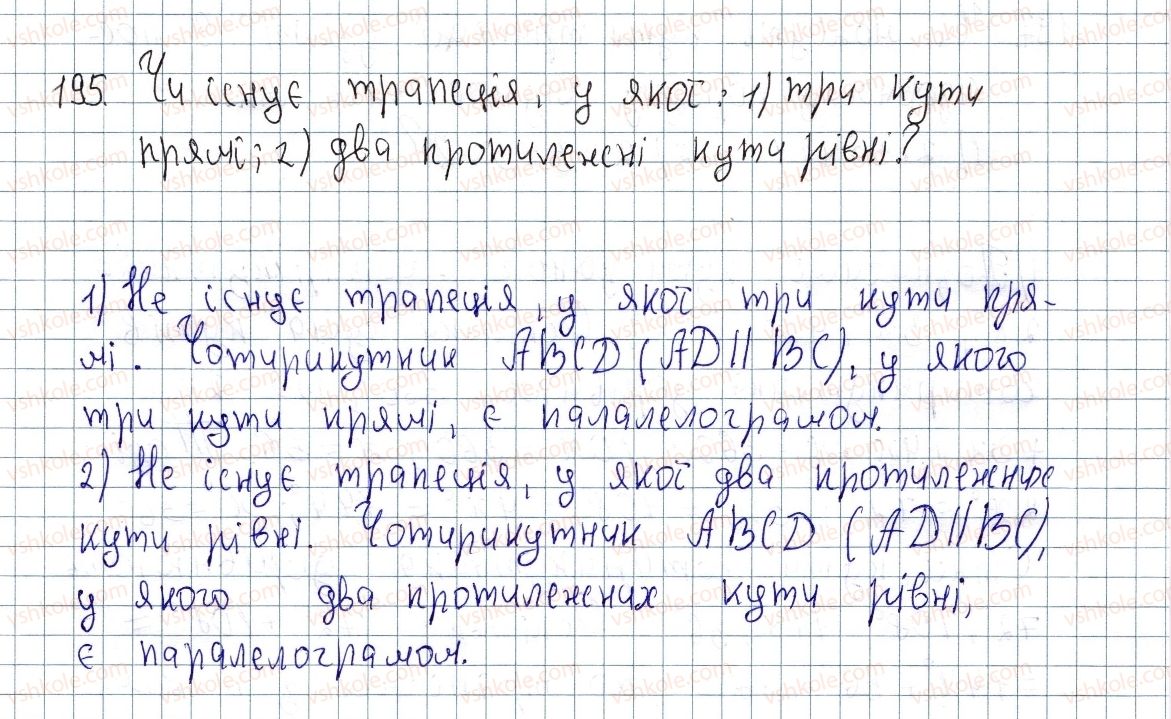 195. Чи існує трапеція, у якої: 1) три кути
прямі; 2) два протилежні кути рівні?
1) Не існує трапеція, у якої три кути пря-
мі. Чотирикутник ABCD (AD || BC), у якого
три кути прямі, є палалелограмом.
2) Не існує трапеція, у якої два протилежних
кути рівні. Чотирикутник ABCD (AD || BC),
у якого два протилежних кути рівні,
є паралелограмом.